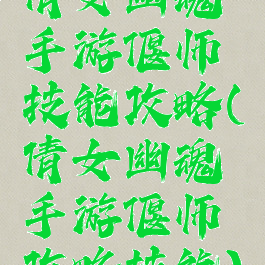 倩女幽魂
手游偃师
技能攻略(
倩女幽魂
手游偃师
攻略技能)